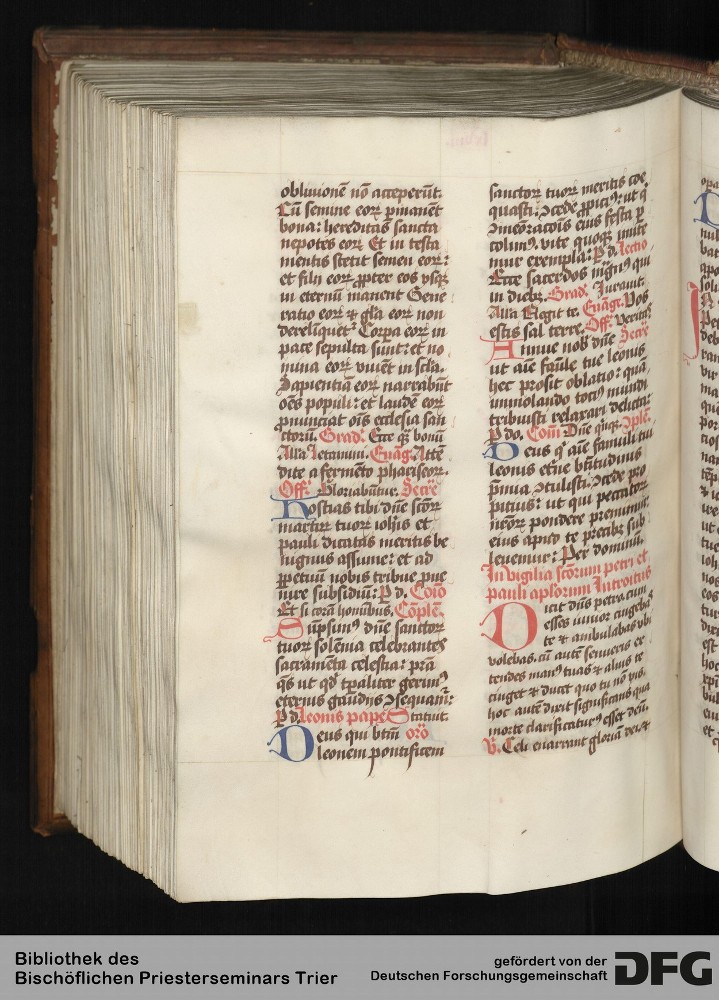 oblivionē nō acceperūt.
Cū semine eorꝝ ꝑmanēt
bona: hereditas sancta
nepotes eorꝝ Et in testa
mentis stetit semen eorꝝ:
et filij eorꝝ ꝓpter eos vsqꝫ
in eternū manent Gene
ratio eorꝝ ⁊ gl̄a eorꝝ non
derelīquet᷑ Corꝑa eorꝝ in
pace sepulta sunt: et no
mina eorꝝ viuēt in sc̄la.
Sapientiā eorꝝ narrabūt
oēs populi: et laudē eorꝝ
ꝓnunciat oīs ecclesia san
ctorū. Grad̄. Ecce qͣ bonū
All'a Letamini. Euāg. Atte
dite a fermēto phariseorꝝ.
Off̄. Gloriabūtur. Secr̄e
Hostias tibi dn̄e sc̄orꝝ
martirꝝ tuorꝝ ioh̄is et
pauli dicatas meritis be
nignus assume: et ad
ꝑpetuū nobis tribue ꝓue
nire subsidiū: P̱ d. Cōio
Et si corā hominibus. Cōplē.
Sūpsimꝰ dn̄e sanctorꝝ
tuorꝝ solēnia celebrantes
sacramēta celestia: prā
qs̄ ut qd̓ tꝑaliter gerimꝰ
eternis gaudijs ꝯsequam᷑:
P̱ d. Leonis pape Statuit.
Deus qui btm̄ or̄o
leonem pontificem
sanctorꝝ tuorꝝ meritis coe
quasti: ꝯcede ꝓpiciꝰ: ut qͥ
ꝯmēoracōis eius festa ꝑ
colimꝰ. vite quoqꝫ imite
mur exempla: P̱ d. Lectio
Ecce sacerdos mͣgnꝰ qui
in diebꝫ. Grad̄. Jurauit.
All'a Elegit te. Euāg. Vos
estis sal terre. Off̄. Veritas
Annue nob̄ dn̄e Secr̄e
ut aīe famĺe tue leonis
hec prosit oblatio: quā
immolando totiꝰ mundi
tribuisti relaxari delicta:
P̱ do. Com̄ Dn̄e quīqꝫ. Cplē.
Deus qͥ aīe famuli tui
leonis etn̄e bt̄itudinis
p̄mia ꝯtulisti: ꝯcede pro
pitius: ut qui peccatorꝝ
nr̄orꝝ pondere premimur
eius apud te precibꝫ sub
leuemur: Per dominū.
In vigilia sc̄orum petri et
pauli apl̄orum Introitus
Dicit dn̄s petro. cum
esses iunior cingebas
te ⁊ ambulabas vbi
volebas. cū autē senueris ex
tendes manꝰ tuas ⁊ alius te
cinget ⁊ ducet quo tu nō vis.
hoc autē dixit significans qua
morte clarificaturꝰ esset deū.
V̄. Celi enarrant gloriā dei. ⁊
Bibliothek des
Bischöflichen Priesterseminars Trier
gefördert von der
Deutschen Forschungsgemeinschaft
DFG